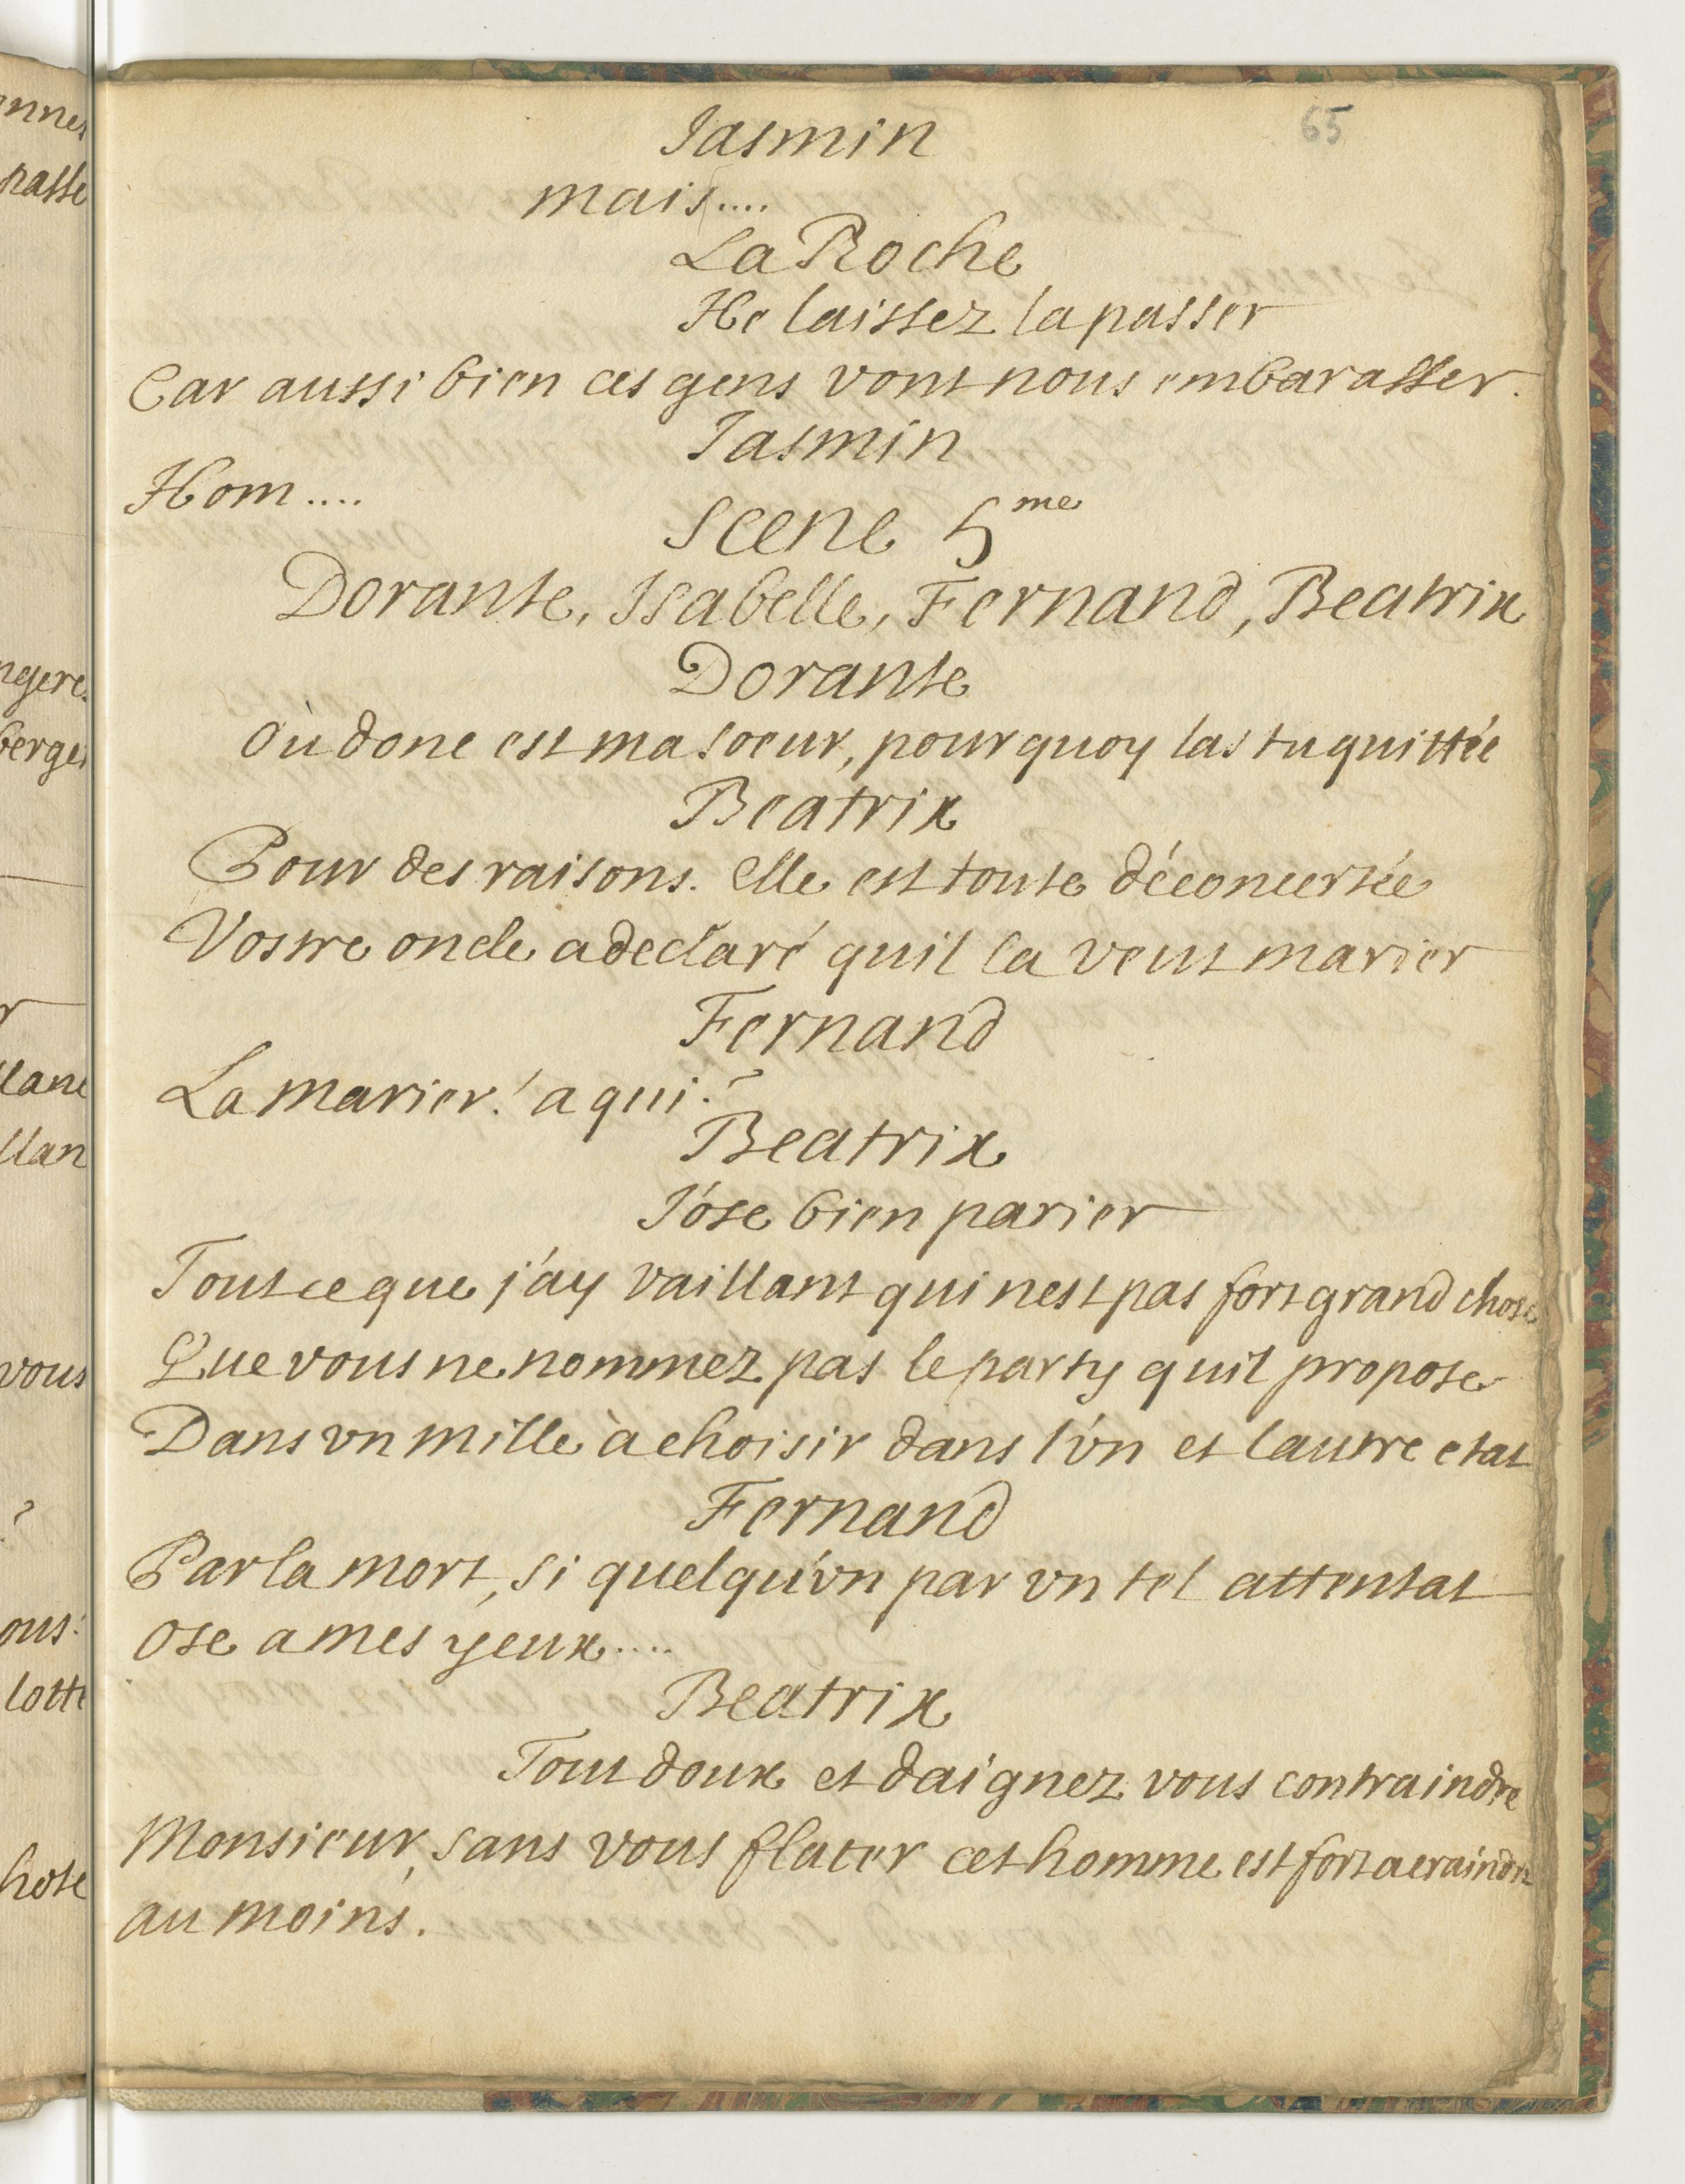 65
Jasmin
mais....
La Roche
He laissez la passer
Car aussi bien ces gens vont nous embarasser.
Jasmin
Hom....
Scene 5me
Dorante, Isabelle, Fernand, Beatrix
Dorante
Où donc est ma soeur, pourquoy las tu quittée
Beatrix
Pour des raisons. elle est toute déconcertée
Vostre oncle a declaré quil la veut marier
Fernand
La marier! a qui?
Beatrix
J'ose bien parier
Tout ce que j'ay vaillant qui nest pas fort grand chose
Que vous ne nommez pas le party quil propose
Dans vn mille à choisir dans l'vn et lautre etat
Fernand
Par la mort, si quelqu'vn par vn tel attentat
Ose a mes yeux....
Beatrix
Tout doux et daignez vous contraindre
Monsieur, sans vous flater cet homme est fort a craindre
au moins.
nner
passe
ngere
berger
r
llane
llan
vous
?
ous.
lotte
hose